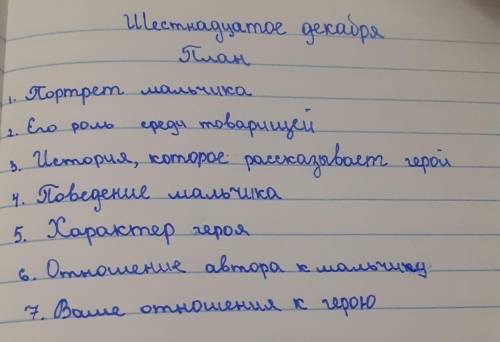 Шестнадцатое декабря
План
1. Портрет мальчика
2. Его роль среди товарищей
3. История, которое рассказывает герой
4. Поведение мальчика
5. Характер героя
6. Отношение автора к мальчику
7. Ваше отношения к герою